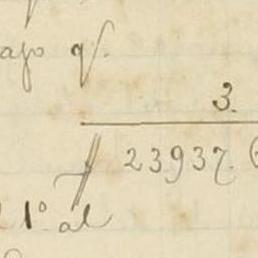 ajo q/.
3.
23937. (
1º al